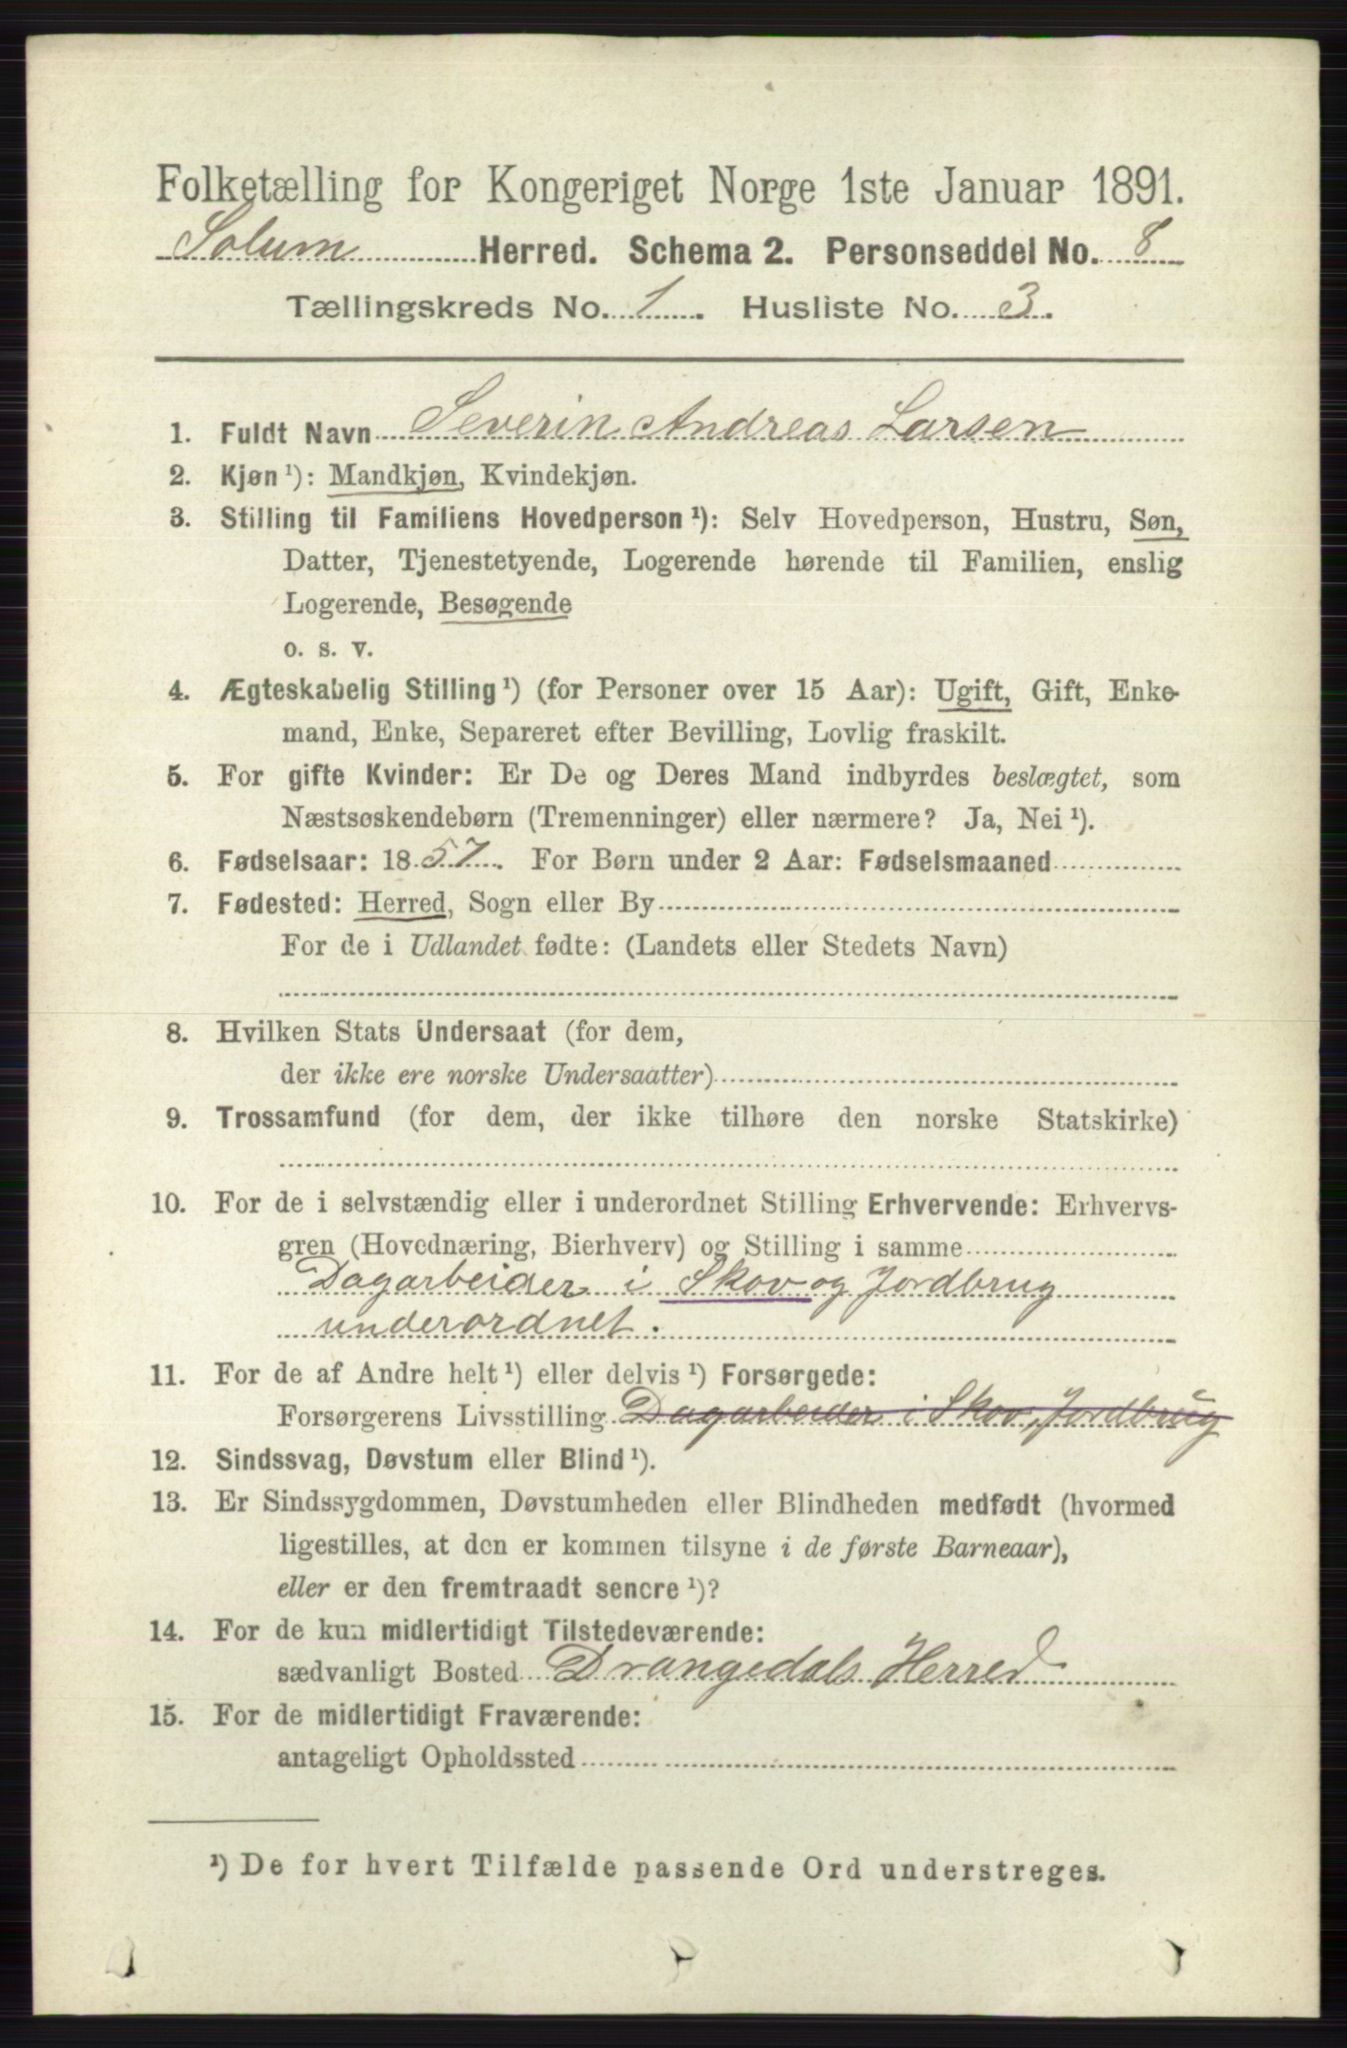 Folketælling for Kongeriget Norge 1ste Januar 1891.
Solum Herred. Schema 2. Personseddel No. 8
Tællingskreds No. 1. Husliste No. 3.
1. Fuldt Navn Severin Andreas Larsen
2. Kjøn¹): Mandkjøn, Kvindekjøn.
3. Stilling til Familiens Hovedperson¹): Selv Hovedperson, Hustru, Søn,
Datter, Tjenestetyende, Logerende hørende til Familien, enslig
Logerende, Besøgende
o. s. v.
4. Ægteskabelig Stilling¹) (for Personer over 15 Aar): Ugift, Gift, Enke-
mand, Enke, Separeret efter Bevilling, Lovlig fraskilt.
5. For gifte Kvinder: Er De og Deres Mand indbyrdes beslægtet, som
Næstsøskendebørn (Tremenninger) eller nærmere? Ja, Nei¹).
6. Fødselsaar: 1857. For Børn under 2 Aar: Fødselsmaaned
7. Fødested: Herred, Sogn eller By
For de i Udlandet fødte: (Landets eller Stedets Navn)
8. Hvilken Stats Undersaat (for dem,
der ikke ere norske Undersaatter)
9. Trossamfund (for dem, der ikke tilhøre den norske Statskirke)
10. For de i selvstændig eller i underordnet Stilling Erhvervende: Erhvervs-
gren (Hovednæring, Bierhverv) og Stilling i samme
Dagarbeider i Skov og Jordbrug
underordnet.
11. For de af Andre helt¹) eller delvis¹) Forsørgede:
Forsørgerens Livsstilling Dagarbeider i Skov, Jordbrug
12. Sindssvag, Døvstum eller Blind¹).
13. Er Sindssygdommen, Døvstumheden eller Blindheden medfødt (hvormed
ligestilles, at den er kommen tilsyne i de første Barneaar),
eller er den fremtraadt senere¹)?
14. For de kun midlertidigt Tilstedeværende:
sædvanligt Bosted Drangedals Herred
15. For de midlertidigt Fraværende:
antageligt Opholdssted
¹) De for hvert Tilfælde passende Ord understreges.